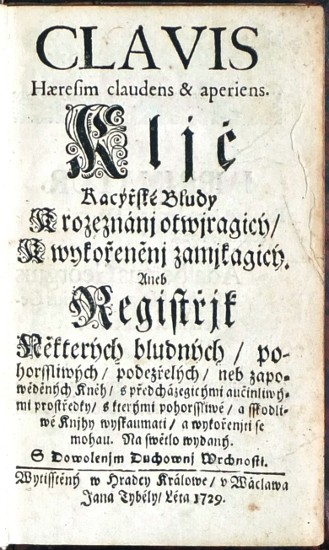 CLAVIS
Hæresim claudens & aperiens.
Kljč
Kacýřské Bludy
K rozeznánj otwjragicý/
K wykořeněnj zamjkagicý.
Aneb
Registřjk
Některých bludných / po-
horsslíwých / podezřelých / neb zapo-
wěděných Kněh / s předcházegicými aučinliwý-
mi prostředky / s kterými pohorssliwé / a sskodli-
wé Knihy wyskaumati / a wykořeniti se
mohau. Na swětlo wydaný.
S Dowolenjm Duchownj Wrchnosti.
Wytisstěný w Hradcy Králowe / v Wáclawa
Jana Tybély / Léta 1729.